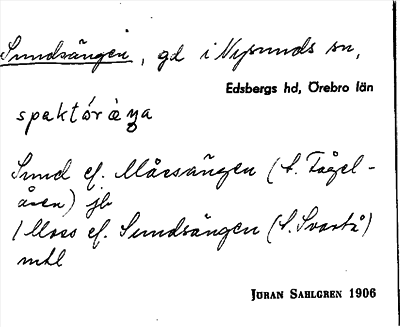 Sundsängen, gd i Nysunds sn,
Edsbergs hd, Örebro län
spektɷ́ràŋa
Sund cf. Måssängen (t. Fågel-
åsen) jb
/ Moss cf. Sundsängen (t. Svartå)
mtl
JÖRAN SAHLGREN 1906